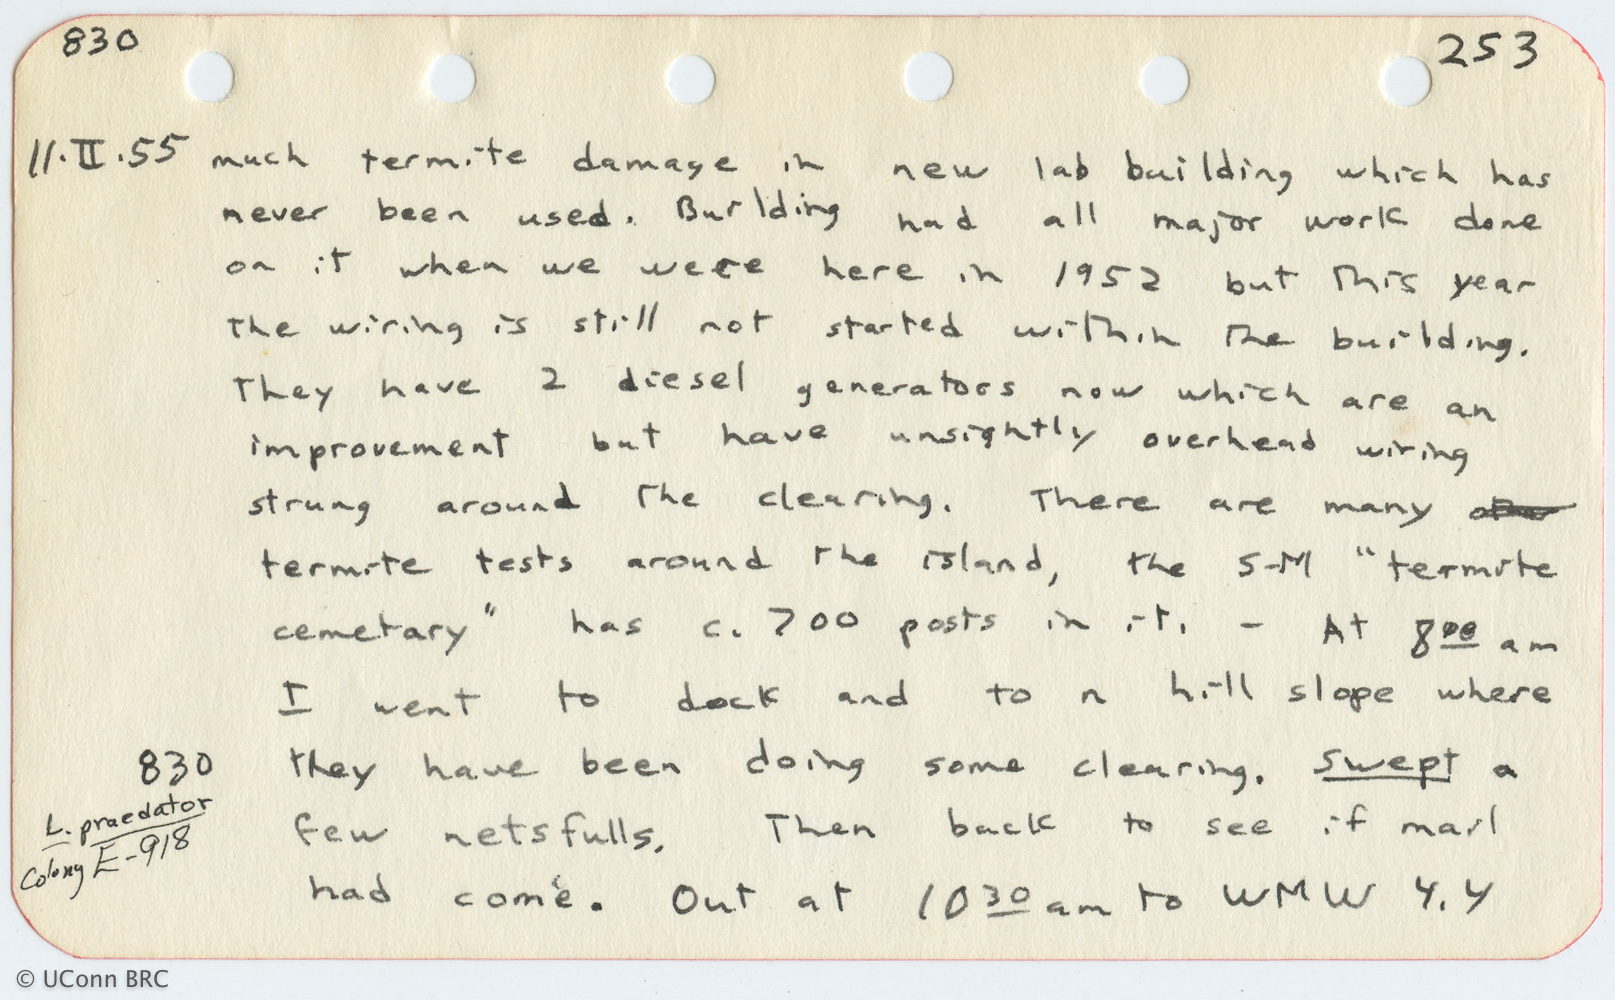 830
253
11.II.55 much termite damage in new lab building which has
never been used. Building had all major work done
on it when we were here in 1952 but this year
the wiring is still not started within the building.
They have 2 diesel generators now which are an
improvement but have unsightly overhead wiring
strung around the clearing. There are many
termite tests around the island, the S-M "termite
cemetary" has c. 700 posts in it. - At 8 00 am
I went to dock and to n hill slope where
830 they have been doing some clearing. Swept a
L. praedator
Colony E-918
few netsfulls. Then back to see if mail
had come. Out at 10 30 am to WMW 4.4
© UConn BRC